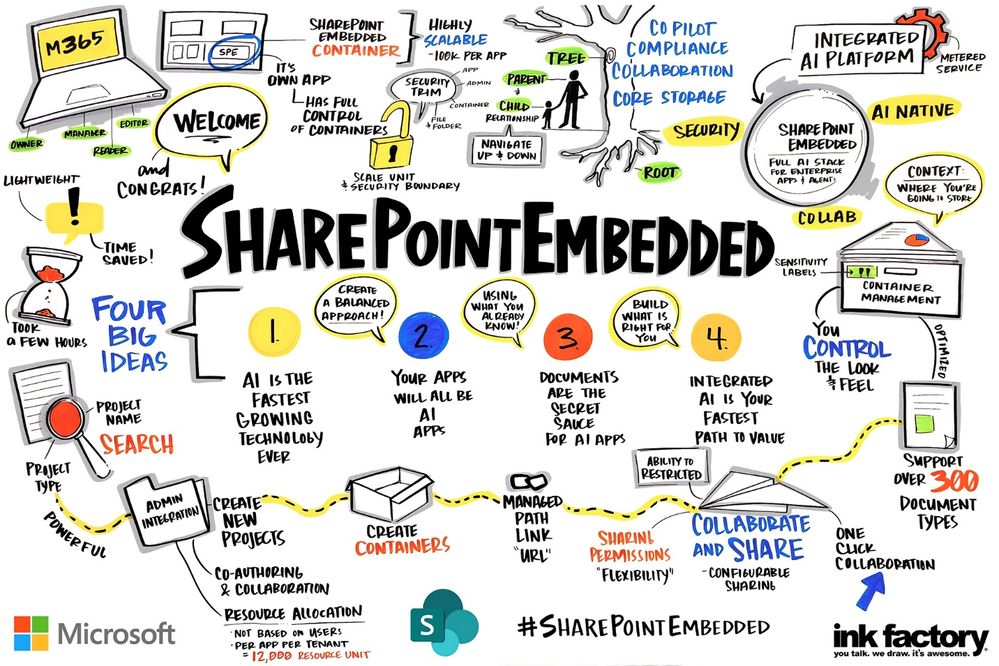 M365
OWNER
MANAGER
EDITOR
READER
SPE
SHAREPOINT
EMBEDDED
CONTAINER
IT'S
OWN APP
HAS FULL
CONTROL
OF CONTAINERS
HIGHLY
SCALABLE
- 100K PER APP
SECURITY
TRIM
APP
ADMIN
CONTAINER
FILE
& FOLDER
SCALE UNIT
& SECURITY BOUNDARY
TREE
PARENT
CHILD
RELATIONSHIP
NAVIGATE
UP & DOWN
ROOT
CO PILOT
COMPLIANCE
COLLABORATION
CORE STORAGE
INTEGRATED
AI PLATFORM
METERED
SERVICE
SECURITY
AI NATIVE
COLLAB
SHAREPOINT
EMBEDDED
FULL AI STACK
FOR ENTERPRISE
APPS & AGENTS
WELCOME
and
CONGRATS!
LIGHTWEIGHT
!
TIME
SAVED!
TOOK
A FEW HOURS
SHAREPOINTEMBEDDED
CONTEXT:
WHERE YOU'RE
GOING TO STORE
SENSITIVITY
LABELS
CONTAINER
MANAGEMENT
YOU
CONTROL
THE LOOK
& FEEL
OPTIMIZED
SUPPORT
OVER 300
DOCUMENT
TYPES
FOUR
BIG
IDEAS
1.
AI IS THE
FASTEST
GROWING
TECHNOLOGY
EVER
CREATE
A BALANCED
APPROACH!
2.
YOUR APPS
WILL ALL BE
AI
APPS
USING
WHAT YOU
ALREADY
KNOW!
3.
DOCUMENTS
ARE THE
SECRET
SAUCE
FOR AI APPS
BUILD
WHAT IS
RIGHT FOR
YOU
4.
INTEGRATED
AI IS YOUR
FASTEST
PATH TO VALUE
PROJECT
NAME
SEARCH
PROJECT
TYPE
POWERFUL
ADMIN
INTEGRATION
CREATE
NEW
PROJECTS
CO-AUTHORING
& COLLABORATION
RESOURCE ALLOCATION
· NOT BASED ON USERS
· PER APP PER TENANT
= 12,000 RESOURCE UNIT
CREATE
CONTAINERS
MANAGED
PATH
LINK
"URL"
SHARING
PERMISSIONS
"FLEXIBILITY"
ABILITY TO
RESTRICTED
COLLABORATE
AND SHARE
- CONFIGURABLE
SHARING
ONE
CLICK
COLLABORATION
Microsoft
S
#SHAREPOINTEMBEDDED
ink factory
you talk. we draw. it's awesome.